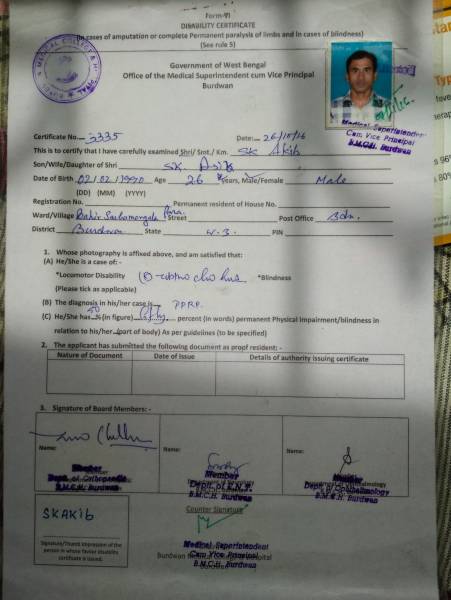 Form-VI
DISABILITY CERTIFICATE
(In cases of amputation or complete Permanent paralysis of limbs and in cases of blindness)
(See rule 5)
Government of West Bengal
Office of the Medical Superintendent cum Vice Principal
Burdwan
Medical Superintendent
Cum Vice Principal
B.M.C.H. Burdwan
Certificate No. 3335 Date:- 26/10/16
This is to certify that I have carefully examined Shri/ Smt./ Km. SK Akib
Son/Wife/Daughter of Shri SK. Asik
Date of Birth 02/02/1990 Age 26 Years, Male/Female Male
(DD) (MM) (YYYY)
Registration No. Permanent resident of House No.
Ward/Village Bahir Sarbamangala Para Street Post Office Bdn.
District Burdwan State W.B. PIN
1. Whose photography is affixed above, and am satisfied that:
(A) He/She is a case of:-
*Locomotor Disability *Blindness
(Please tick as applicable)
(B) The diagnosis in his/her case is PPRP
(C) He/She has 50 % (in figure) Fifty percent (in words) permanent Physical Impairment/blindness in
relation to his/her (part of body) As per guidelines (to be specified)
2. The applicant has submitted the following document as proof resident: -
Nature of Document Date of Issue Details of authority issuing certificate
3. Signature of Board Members: -
Name: Name: Name:
Member Member Member
Dept. of Orthopaedic Dept. of E.N.T. Dept. of Ophthalmology
B.M.C.H. Burdwan B.M.C.H. Burdwan B.M.C.H. Burdwan
SK AKIB
Counter Signature
Signature/Thumb impression of the
person in whose favour disability
certificate is issued.
Medical Superintendent
Cum Vice Principal
B.M.C.H. Burdwan